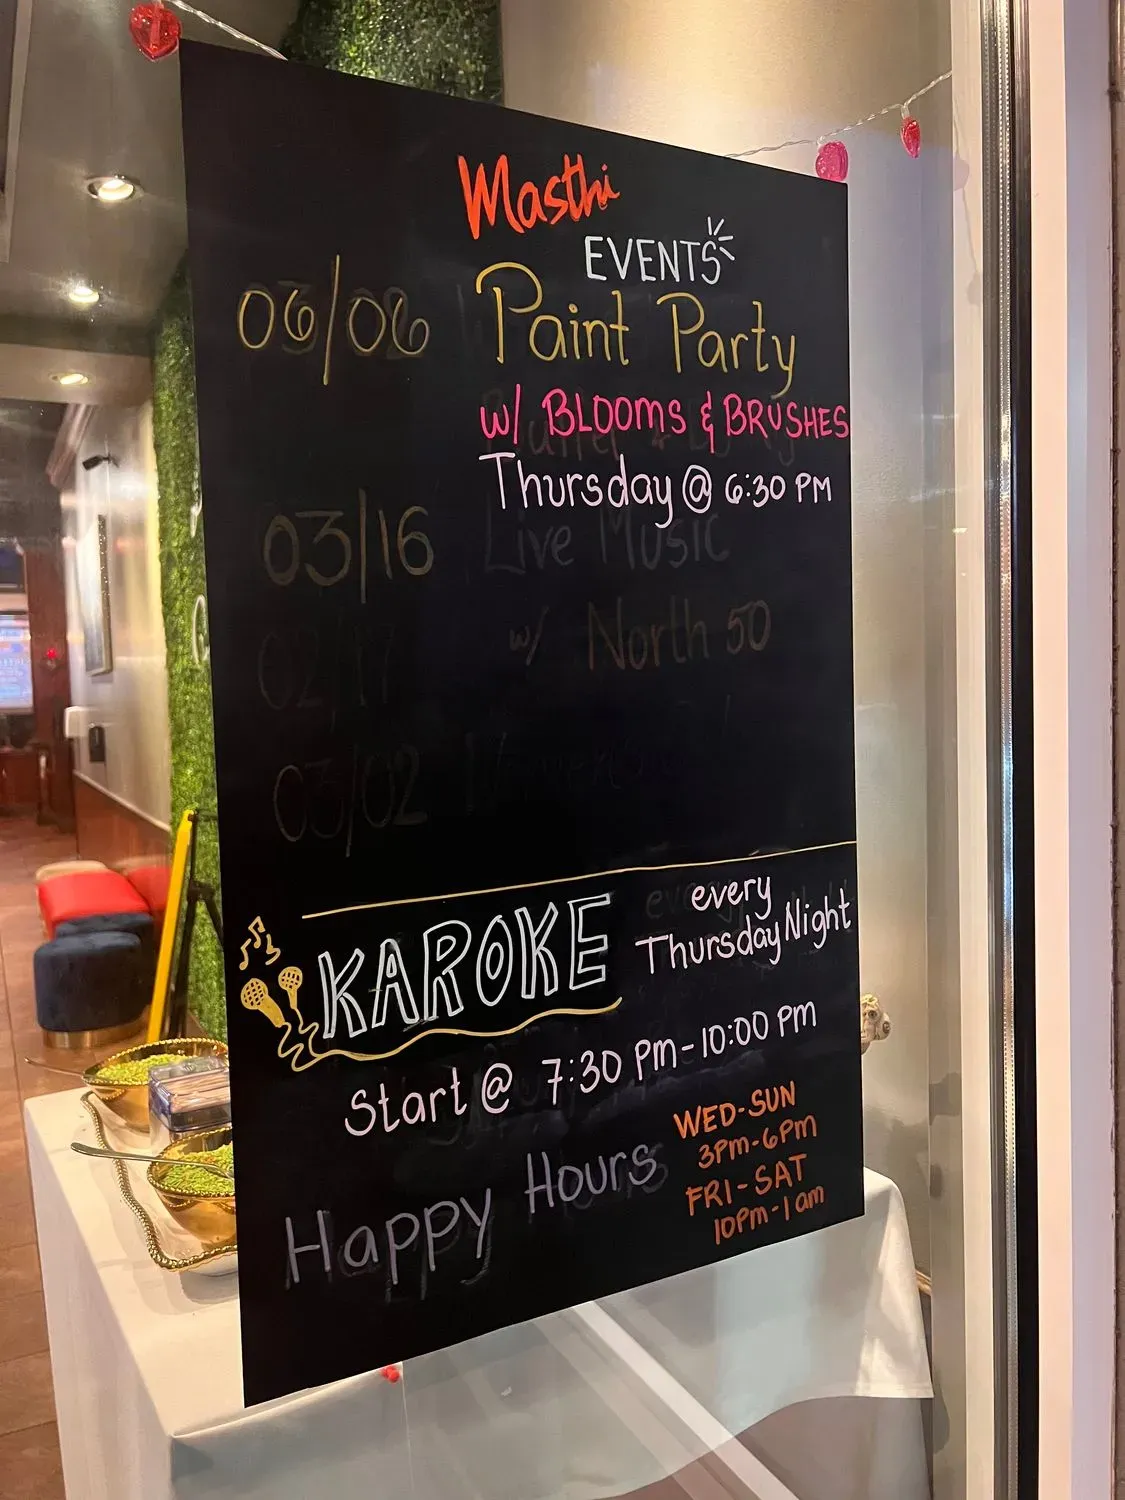 Masthi
EVENTS
06/06 Paint Party
w/ BLOOMS & BRUSHES
Thursday @ 6:30 PM
03/16 Live Music
w/ North 50
02/17
03/02
KAROKE every
Thursday Night
Start @ 7:30 PM-10:00 PM
Happy Hours
WED-SUN
3PM-6PM
FRI-SAT
10PM-1am